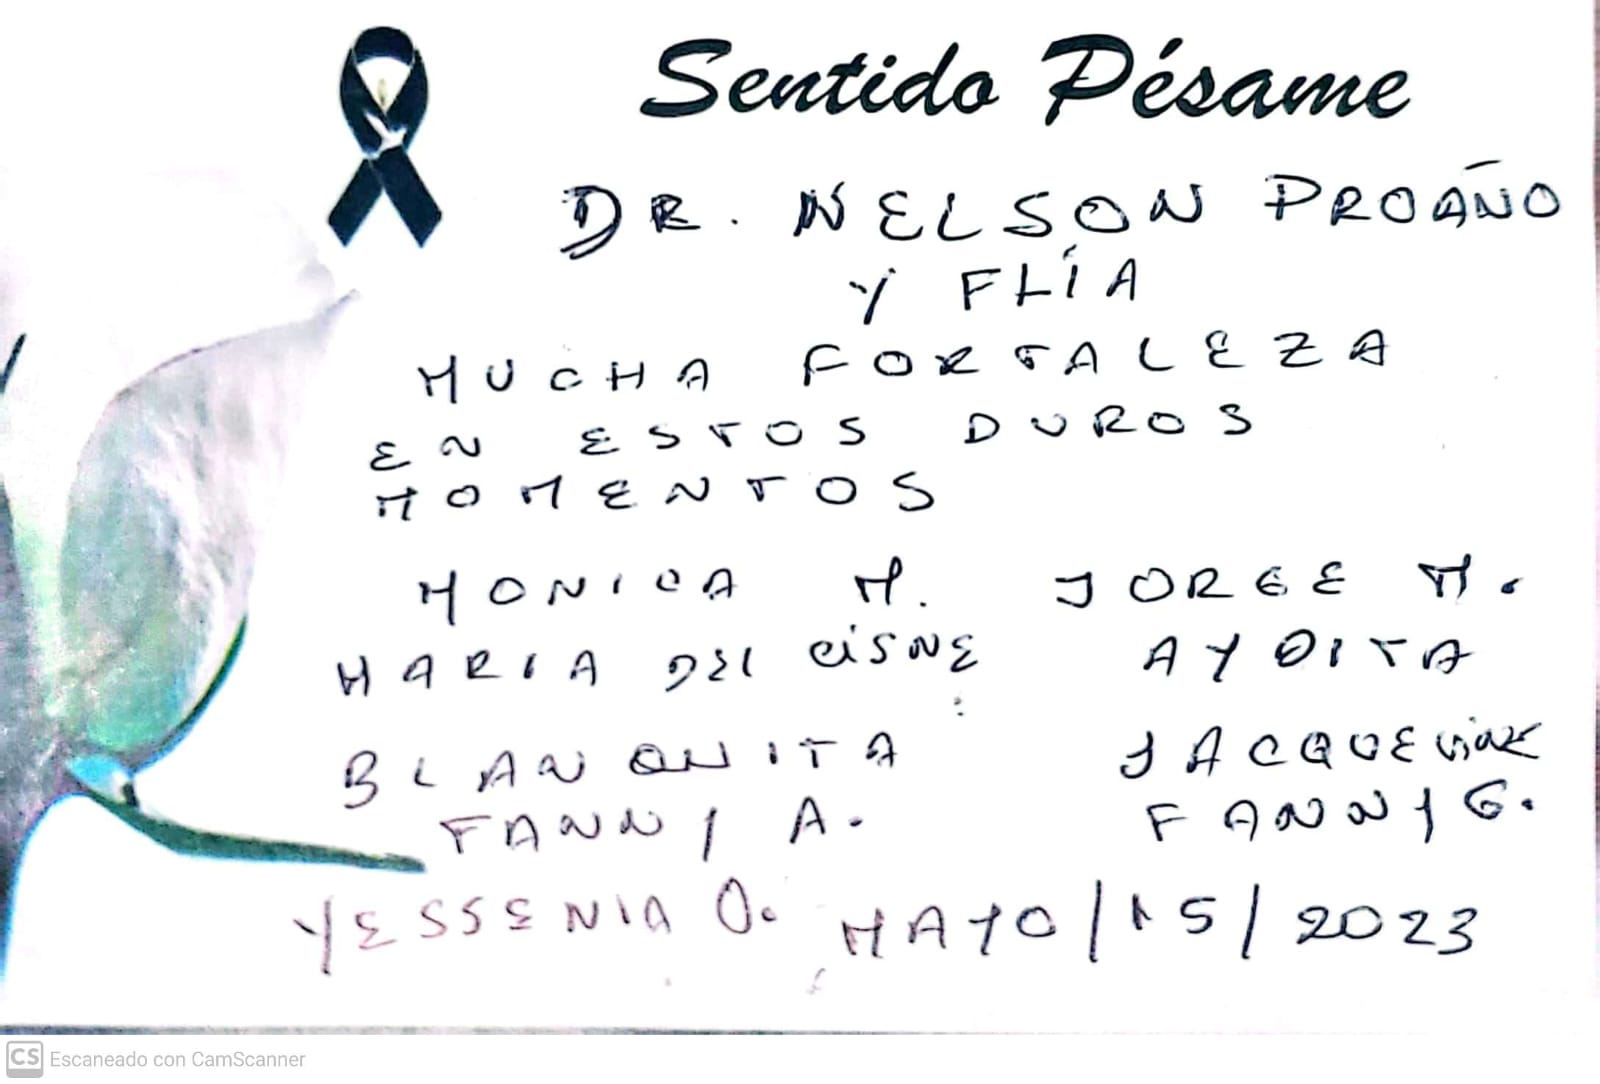 Sentido Pésame
DR. NELSON PROAÑO
Y FLÍA
MUCHA FORTALEZA
EN ESTOS DUROS
MOMENTOS
MONICA M. JORGE M.
MARIA DEL CISNE AYDITA
BLANQUITA JACQUELINE
FANNY A. FANNY G.
YESSENIA O. MAYO/15/2023
CS Escaneado con CamScanner